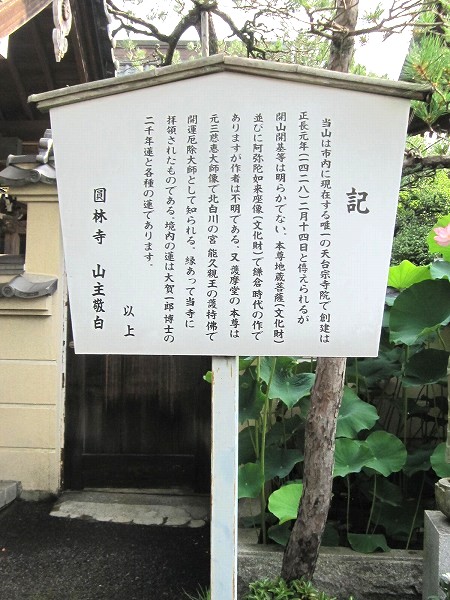 記
当山は市内に現在する唯一の天台宗寺院で創建は
正長元年(一四二八)二月十四日と伝えられるが
開山開基等は明らかでない、本尊地蔵菩薩(文化財)
並びに阿弥陀如来座像(文化財)で鎌倉時代の作で
ありますが作者は不明である。又護摩堂の本尊は
元三慈恵大師像で北白川の宮 能久親王の護持佛で
開運厄除大師として知られる。縁あって当寺に
拝領されたものである。境内の蓮は大賀一郎博士の
二千年蓮と各種の蓮であります。
以上
圓林寺 山主敬白